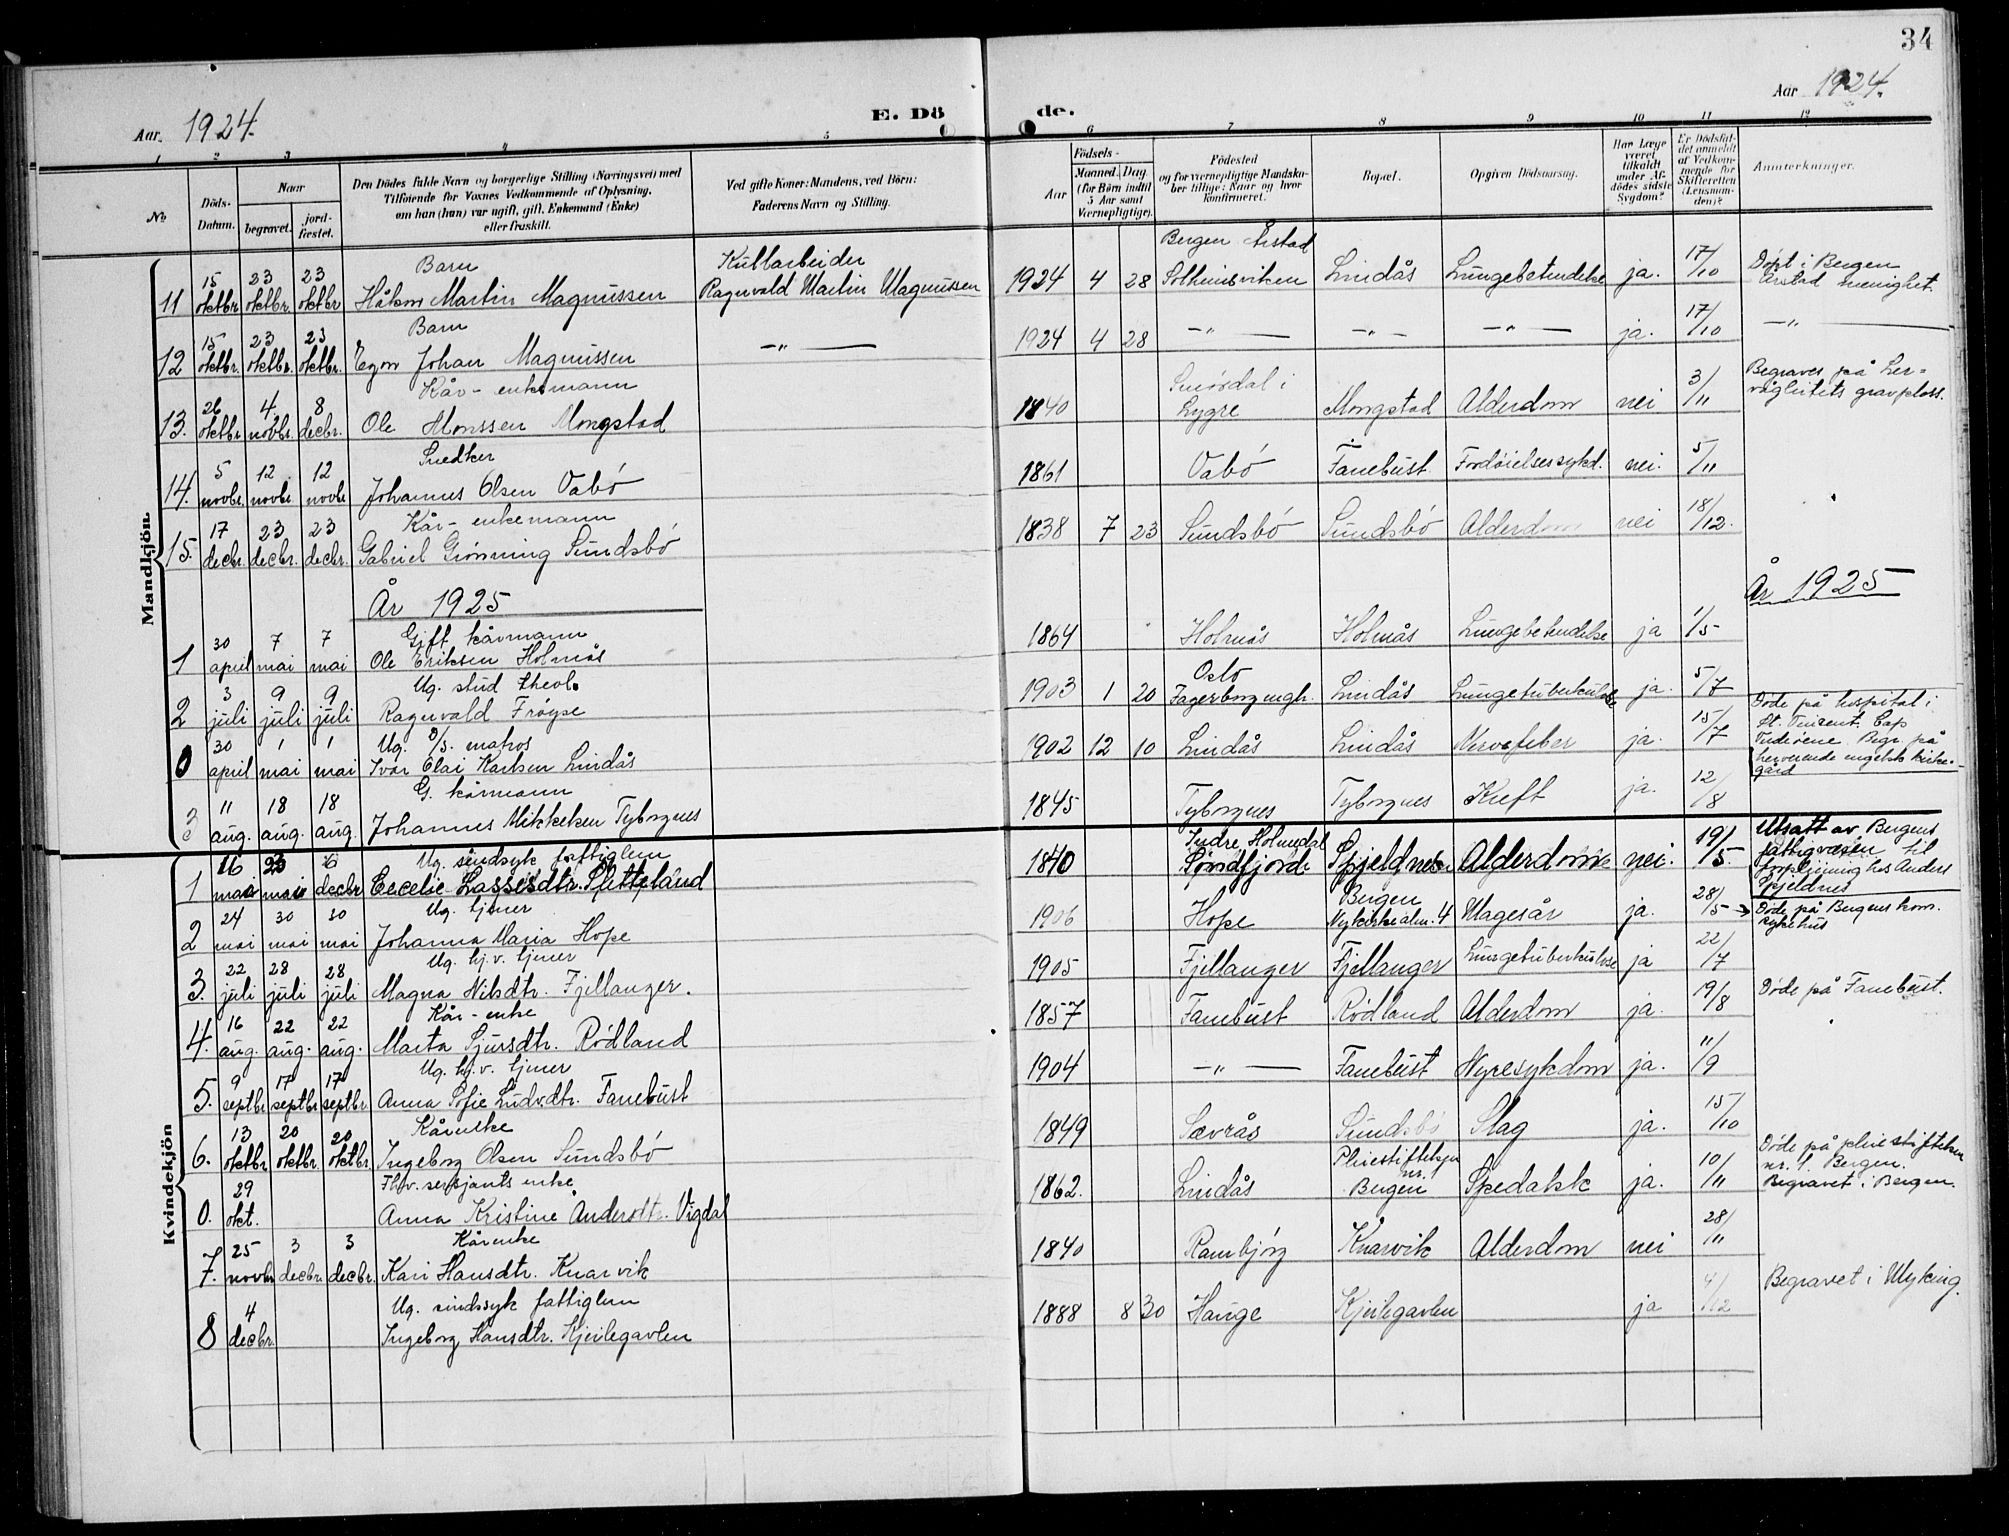 34
Aar 1924.
E. Dö
de.
Aar 1924.
1 2 3 4 5 6 7 8 9 10 11 12
No
Döds-
Datum.
Naar
begravet.
jord-
fæstet.
Den Dödes fulde Navn og borgerlige Stilling (Næringsvei) med
Tilföiende for Voxnes Vedkommende af Oplysning,
om han (hun) var ugift, gift, Enkemand (Enke)
eller fraskilt.
Ved gifte Koner: Mandens, ved Börn:
Faderens Navn og Stilling.
Födsels-
Aar
Maaned. Dag.
(for Börn indtil
5 Aar samt
Værnepligtige).
Födested
og for værnepligtige Mandska-
ber tillige: Naar og hvor
konfirmeret.
Bopæl.
Opgiven Dödsaarsag.
Har Læge
været
tilkaldt
under Af-
dödes sidste
Sygdom?
Er Dödsfal-
det anmeldt
af Vedkom-
mende for
Skifteretten
(Lensman-
den)?
Anmærkninger.
Mandkjön.
Barn Kullarbeider Bergen Årstad
11 15 oktbr. 23 oktbr. 23 oktbr. Håkon Martin Magnussen Ragnvald Martin Magnussen 1924 4 28 Solheimsviken Lindås Lungebetendelse ja. 17/10 Døpt i Bergen
Årstad menighet.
Barn
12 15 oktbr. 23 oktbr. 23 oktbr. Egon Johan Magnussen —"— 1924 4 28 —"— —"— —"— ja. 17/10 —"—
Kår- enkemann
13. 26 oktbr 4 novbr. 8 decbr. Ole Monssen Mongstad 1840 Lygre Mongstad Alderdom nei 3/11 Begraves på Ler-
Snedker
14. 5 novbr. 12 novbr. 12 novbr Johannes Olsen Vabó 1861 Vabó Fanebust Fordøielsessykd. nei. 5/11
Kår- enkemann
15. 17 decbr. 23 decbr. 23 decbr. Gabriel Grønning Sundsbó 1838 7 23 Sundsbó Sundsbó Alderdom nei 18/12.
År 1925 År 1925
Gift kårmann
1 30 april 7 mai 7 mai Ole Eriksen Holmås 1864 Holmås Holmås Lungebetendelse ja 1/5
Ug. stud theol. Oslo
2 3 juli 9 juli 9 juli Ragnvald Frøyse 1903 1 20 Fagerborg mgh. Lindås Lungetuberkulose ja. 5/7
Ug. matros
0 30 april 1 mai 1 mai Ivar Olai Karlsen Lindås 1902 12 10 Lindås Lindås Nervefeber ja. 15/7 Døde på hospital i
St. Vinsent. Cap
Begr. på
herværende engelsk kirke-
gård
G. kårmann
3 11 aug. 18 aug. 18 aug. Johannes Mikkelsen Tyborgnes 1845 Tyborgnes Tyborgnes Kreft ja. 12/8
Kvindekjön
Ug. sindsyk fattiglem Indre Holmedal
1 16 mai 23 mai 6 decbr Cecelie Lassesdtr. Sletteland 1840 Søndfjord Spjeldnes Alderdom nei. 19/5. Utsatt av Bergens
fattigvæsen til
forpleining hos Anders
Spjeldnes
Ug. tjener Bergen
2 24 mai 30 mai 30 mai Johanna Maria Hope 1906 Hope Nykirkealm. 4 Magesår ja. 28/5 → Døde på Bergens kom.
sykehus
Ug. hj. v. tjener
3. 22 juli 28 juli 28 juli Magna Nilsdtr. Fjellanger. 1905 Fjellanger Fjellanger Lungetuberkulose ja 22/7
Kår- enke
4. 16 aug. 22 aug. 22 aug. Marta Sjursdtr. Rødland 1857 Fanebust Rødland Alderdom ja. 19/8 Døde på Fanebust.
Ug. hj. v. tjener
5. 9 septbr 17 septbr 17 septbr. Anna Sofie Ludv.dtr. Fanebust 1904 —"— Fanebust Nyresykdom ja. 11/9
Kårenke
6. 13 oktbr 20 oktbr. 20 oktbr. Ingeborg Olsen Sundsbó 1849 Sævrås Sundsbó Slag ja. 15/10
Fhv. sersjants enke Pleiestiftelsen
nr. 1
0. 29 okt. Anna Kristine Andersdtr. Vigdal 1862. Lindås Bergen Spedalsk ja. 10/11 Døde på pleiestiftelsen
nr. 1. Bergen.
Begravet i Bergen.
Kårenke
7. 25 novbr 3 decbr. 3 decbr. Kari Hansdtr. Knarvik 1840 Rambjørg Knarvik Alderdom nei 28/11
Ug. sindssyk fattiglem
8 4 decbr. Ingeborg Hansdtr. Kjeilegavlen 1888 8 30 Hauge Kjeilegavlen ja 4/12 Begravet i Myking.